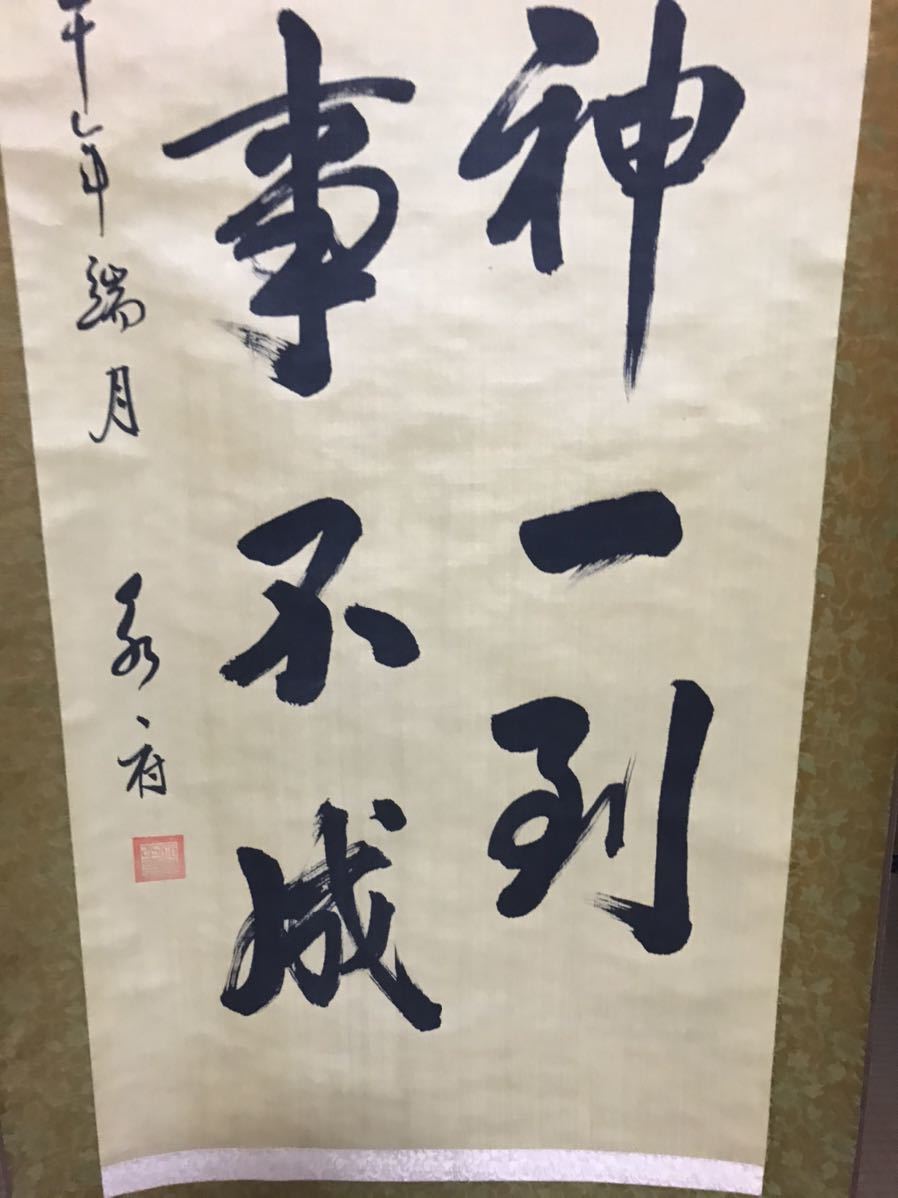 神一到
事不成
年端月